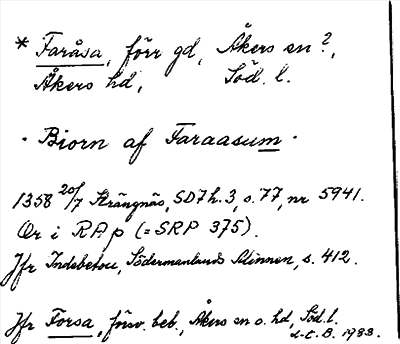 * Faråsa, förr gd, Åkers sn?,
Åkers hd, Söd. l.
· Biorn af Faraasum ·
1358 20/7 Strängnäs, SD7h.3, s.77, nr 5941.
Or i RAp (= SRP 375).
Jfr Indebetou, Södermanlands Minnen, s. 412.
Jfr Forsa, försv. beb., Åkers sn o. hd, Söd. l.
L-E. B. 1983.